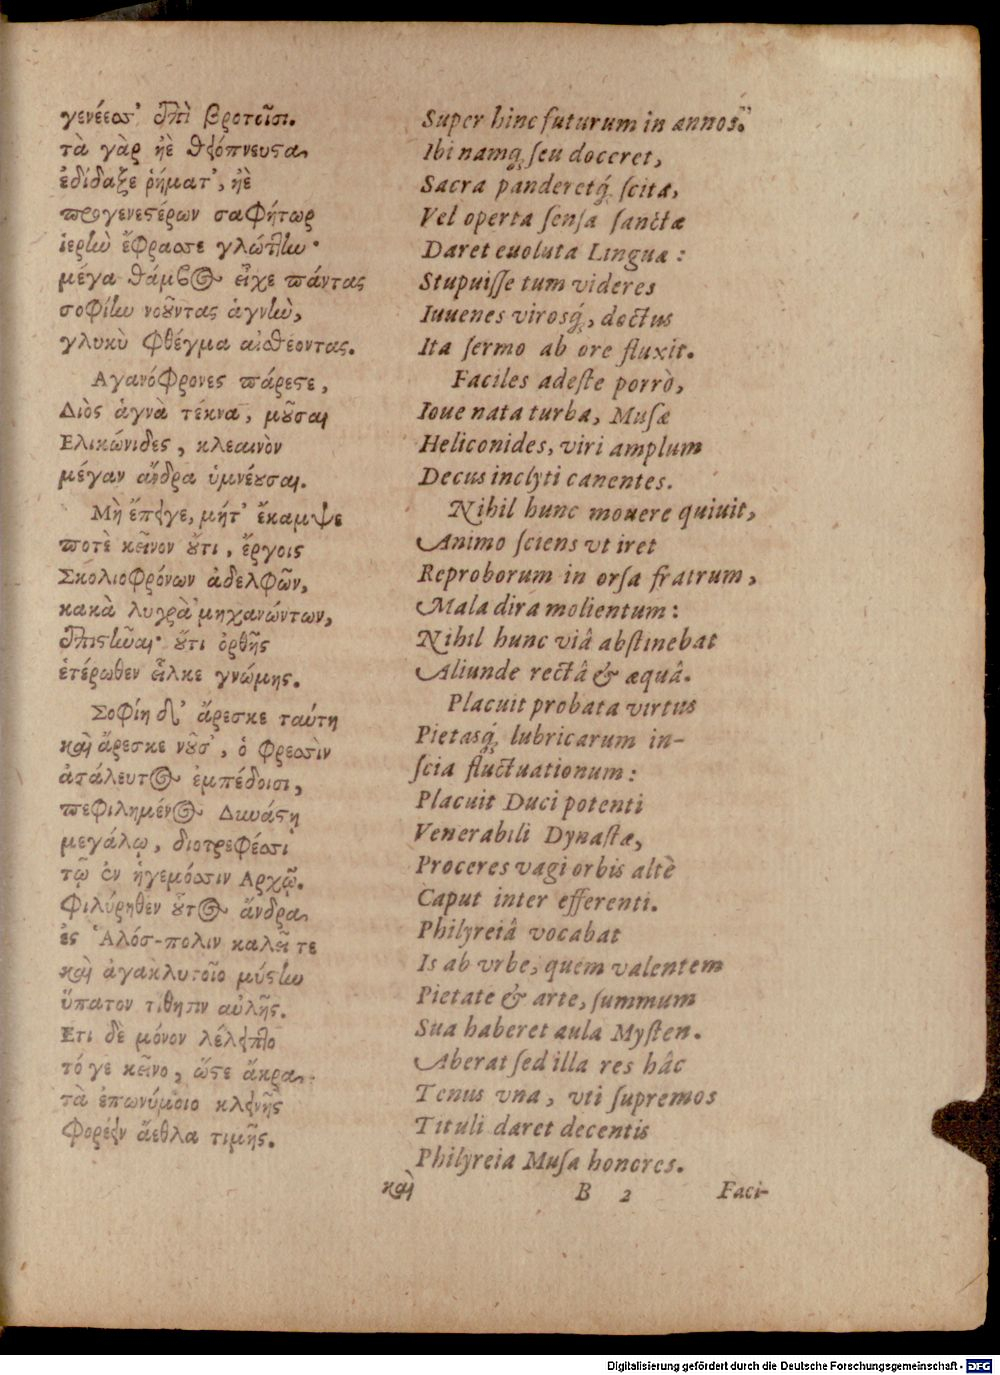 γενέεσσ' ἐπὶ βροτοῖσι.
τὰ γὰρ ἠὲ θεόπνευστα
ἐδίδαξε ῥήματ', ἠὲ
προγενεστέρων σαφήτωρ
ἱερὴν ἔφρασσε γλώττην·
μέγα θάμβος εἶχε πάντας
σοφίην νοοῦντας ἁγνὴν,
γλυκὺ φθέγμα αἰσθέοντας.
Αγανόφρονες πάρεστε,
Διὸς ἁγνὰ τέκνα, μοῦσαι
Ελικώνιδες, κλεεινὸν
μέγαν ἄνδρα ὑμνέουσαι.
Μὴ ἔπειγε, μήτ' ἔκαμψε
ποτὲ κεῖνον οὔτι, ἔργοις
Σκολιοφρόνων ἀδελφῶν,
κακὰ λυγρὰ μηχανώντων,
ἐπιστῆναι· οὔτι ὀρθῆς
ἑτέρωθεν εἷλκε γνώμης.
Σοφίη δι' ἄρεσκε ταύτη
καὶ ἄρεσκε νοῦσ', ὁ φρεσὶν
ἀσάλευτος ἐμπέδοισι,
πεφιλημένος Δυνάστῃ
μεγάλῳ, διοτρεφέσσι
τῷ ἐν ἡγεμόσσιν Αρχῷ.
Φιλύρηθεν οὗτος ἄνδρα
ἐς Ἁλός-πολιν καλεῖ τε
καὶ ἀγακλυτοῖο μύστην
ὕπατον τίθησιν αὐλῆς.
Ετι δὲ μόνον λέλειπτο
τόγε κεῖνο, ὥστε ἄκρα
τὰ ἐπωνύμοιο κλεινῆς
φορέειν ἄεθλα τιμῆς.
καὶ
Super hinc futurum in annos.
Ibi namq́; seu doceret,
Sacra panderetq́; scita,
Vel operta sensa sanctæ
Daret euoluta Linguæ:
Stupuisse tum videres
Iuuenes virosq́;, doctus
Ita sermo ab ore fluxit.
Faciles adeste porrò,
Ioue nata turba, Musæ
Heliconides, viri amplum
Decus inclyti canentes.
Nihil hunc mouere quiuit,
Animo sciens vt iret
Reproborum in orsa fratrum,
Mala dira molientum:
Nihil hunc viâ abstinebat
Aliunde rectâ & æquâ.
Placuit probata virtus
Pietasq́; lubricarum in-
scia fluctuationum:
Placuit Duci potenti
Venerabili Dynastæ,
Proceres vagi orbis altè
Caput inter efferenti.
Philyreiâ vocabat
Is ab vrbe, quem valentem
Pietate & arte, summum
Sua haberet aula Mysten.
Aberat sed illa res hâc
Tenus vna, vti supremos
Tituli daret decentis
Philyreia Musa honores.
B 2 Faci-
Digitalisierung gefördert durch die Deutsche Forschungsgemeinschaft - DFG